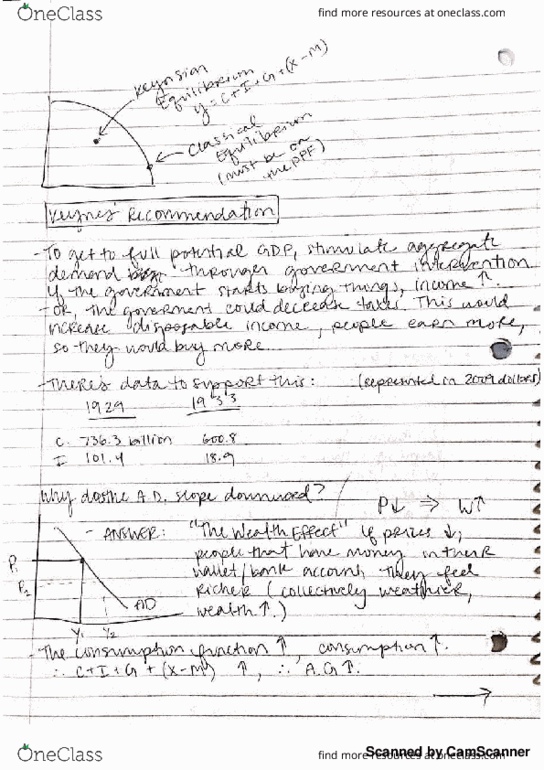 OneClass
find more resources at oneclass.com
Keynsian
Equilibrium
y = C+I+G+(X-M)
Classical
Equilibrium
(must be on
the PPF)
Keynes' Recommendation
- To get to full potential GDP, stimulate aggregate
demand through government intervention
If the government starts buying things, income ↑.
- OR, the goverment could decrease taxes. This would
increase disposable income, people earn more,
so they would buy more.
- There's data to support this: (represented in 2009 dollars)
1929 1933
C. 736.3 billion 600.8
I 101.4 18.9
Why does the A.D. slope downward?
P↓ ⇒ W↑
- ANSWER: "The Wealth Effect" If prices ↓,
people that have money in their
wallet/bank account, they feel
richer (collectively wealthier,
wealth ↑.)
P₁
P₂
AD
Y₁ Y₂
- The consumption function ↑, consumption ↑.
∴ C+I+G+(X-M) ↑, ∴ A.G↑.
OneClass
find more resources at oneclass.com
Scanned by CamScanner